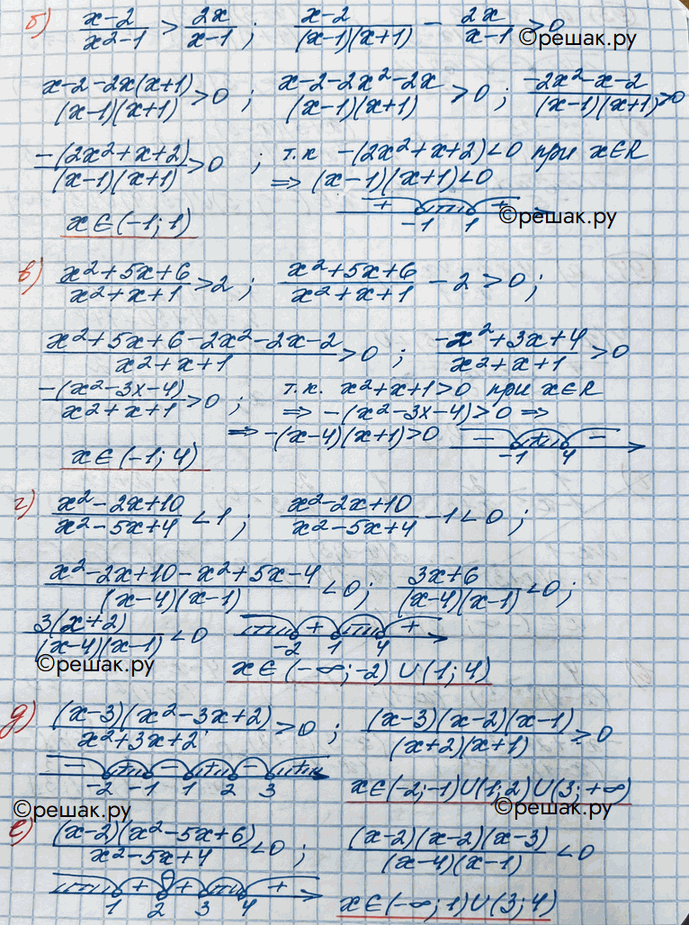 б) (x-2)/(x²-1) > 2x/(x-1) ; (x-2)/((x-1)(x+1)) - 2x/(x-1) > 0
©решак.ру
(x-2-2x(x+1))/((x-1)(x+1)) > 0 ; (x-2-2x²-2x)/((x-1)(x+1)) > 0 ; (-2x²-x-2)/((x-1)(x+1)) > 0
-(2x²+x+2)/((x-1)(x+1)) > 0 ; т.к -(2x²+x+2)<0 при x∈R
⇒ (x-1)(x+1)<0
+ +
-1 1
©решак.ру
x∈(-1;1)
в) (x²+5x+6)/(x²+x+1) > 2 ; (x²+5x+6)/(x²+x+1) - 2 > 0 ;
(x²+5x+6-2x²-2x-2)/(x²+x+1) > 0 ; (-x²+3x+4)/(x²+x+1) > 0
-(x²-3x-4)/(x²+x+1) > 0 ; т.к. x²+x+1>0 при x∈R
⇒ -(x²-3x-4)>0 ⇒
⇒ -(x-4)(x+1)>0
- + -
-1 4
x∈(-1;4)
г) (x²-2x+10)/(x²-5x+4) < 1 ; (x²-2x+10)/(x²-5x+4) - 1 < 0 ;
(x²-2x+10-x²+5x-4)/((x-4)(x-1)) < 0 ; (3x+6)/((x-4)(x-1)) < 0 ;
3(x+2)/((x-4)(x-1)) < 0
+ +
-2 1 4
©решак.ру
x∈(-∞;-2)∪(1;4)
д) (x-3)(x²-3x+2)/(x²+3x+2) > 0 ; (x-3)(x-2)(x-1)/((x+2)(x+1)) > 0
- + - + - +
-2 -1 1 2 3
x∈(-2;-1)∪(1;2)∪(3;+∞)
©решак.ру
©решак.ру
е) (x-2)(x²-5x+6)/(x²-5x+4) < 0 ; (x-2)(x-2)(x-3)/((x-4)(x-1)) < 0
+ + +
1 2 3 4
x∈(-∞;1)∪(3;4)